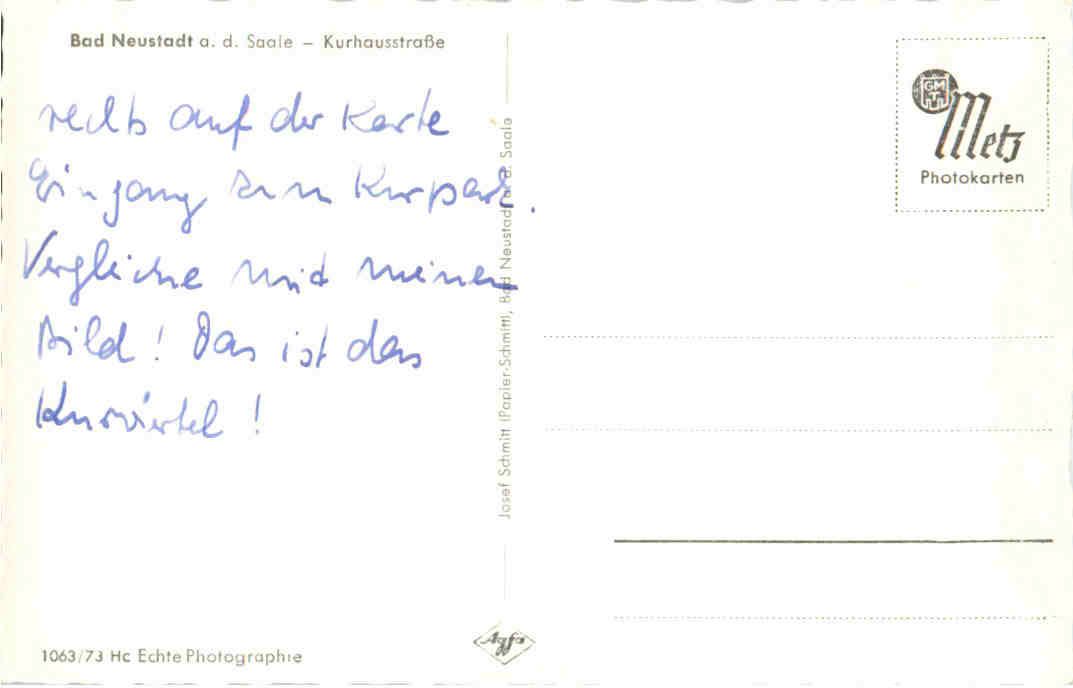 Bad Neustadt a. d. Saale – Kurhausstraße
rechts auf der Karte
Eingang zum Kurpark.
Vergleiche mit meinem
Bild! Das ist das
Kurviertel!
Josef Schmitt (Papier-Schmitt), Bad Neustadt a. d. Saale
GMT
Metz
Photokarten
Agfa
1063/73 Hc Echte Photographie